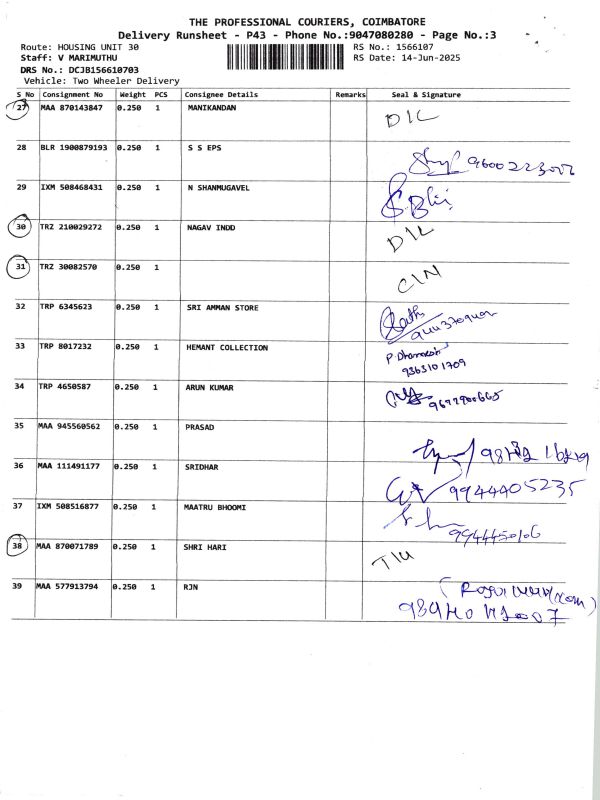 THE PROFESSIONAL COURIERS, COIMBATORE
Delivery Runsheet - P43 - Phone No.:9047080280 - Page No.:3
Route: HOUSING UNIT 30
RS No.: 1566107
Staff: V MARIMUTHU
RS Date: 14-Jun-2025
DRS No.: DCJB156610703
Vehicle: Two Wheeler Delivery
S No Consignment No Weight PCS Consignee Details Remarks Seal & Signature
27 MAA 870143847 0.250 1 MANIKANDAN D/L
28 BLR 1900879193 0.250 1 S S EPS
29 IXM 508468431 0.250 1 N SHANMUGAVEL
30 TRZ 210029272 0.250 1 NAGAV INDD D/L
31 TRZ 30082570 0.250 1
32 TRP 6345623 0.250 1 SRI AMMAN STORE
33 TRP 8017232 0.250 1 HEMANT COLLECTION
9363101709
34 TRP 4650587 0.250 1 ARUN KUMAR
35 MAA 945560562 0.250 1 PRASAD
36 MAA 111491177 0.250 1 SRIDHAR 9944405235
37 IXM 508516877 0.250 1 MAATRU BHOOMI
9944450106
38 MAA 870071789 0.250 1 SHRI HARI
39 MAA 577913794 0.250 1 RJN